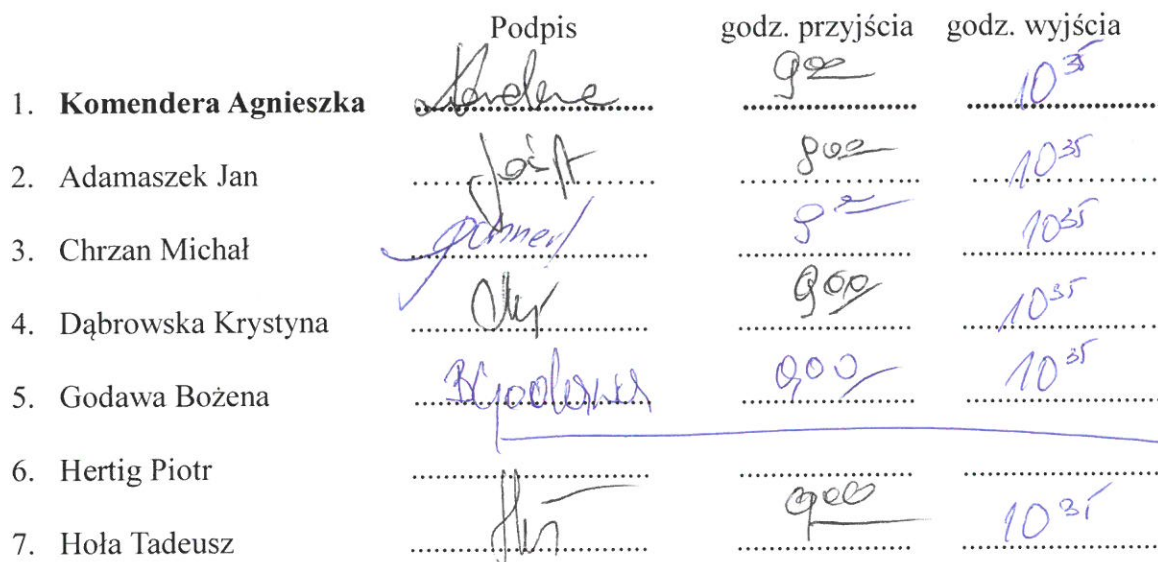 Podpis godz. przyjścia godz. wyjścia
1. Komendera Agnieszka 9 00 10 35
2. Adamaszek Jan 9 00 10 35
3. Chrzan Michał 9 00 10 35
4. Dąbrowska Krystyna 9 00 10 35
5. Godawa Bożena BGodawa 9 00 10 35
6. Hertig Piotr
7. Hoła Tadeusz 9 00 10 35